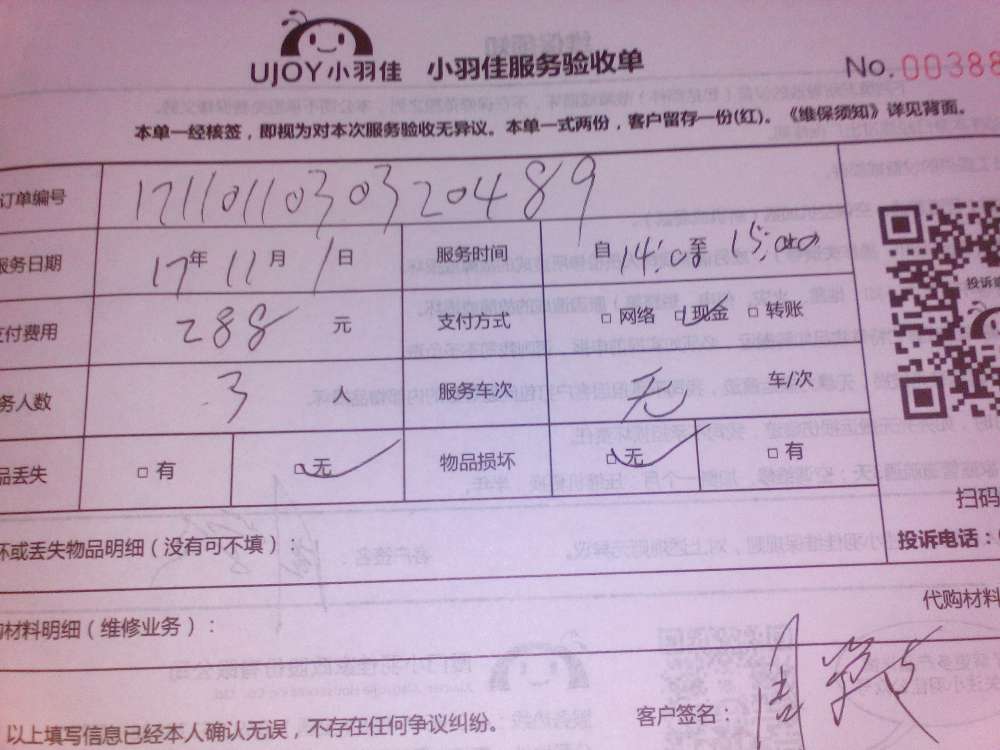 UJOY小羽佳 小羽佳服务验收单 No. 00388
本单一经核签，即视为对本次服务验收无异议。本单一式两份，客户留存一份(红)。《维保须知》详见背面。
订单编号 1711011030320489
服务日期 17年 11月 1日 服务时间 自 14:00 至 15:00
支付费用 288 元 支付方式 □ 网络 □ 现金 □ 转账
务人数 3 人 服务车次 无 车/次
品丢失 □ 有 □ 无 物品损坏 □ 无 □ 有
投诉
扫码
坏或丢失物品明细（没有可不填）：
投诉电话：
代购材料
购材料明细（维修业务）：
以上填写信息已经本人确认无误，不存在任何争议纠纷。 客户签名：